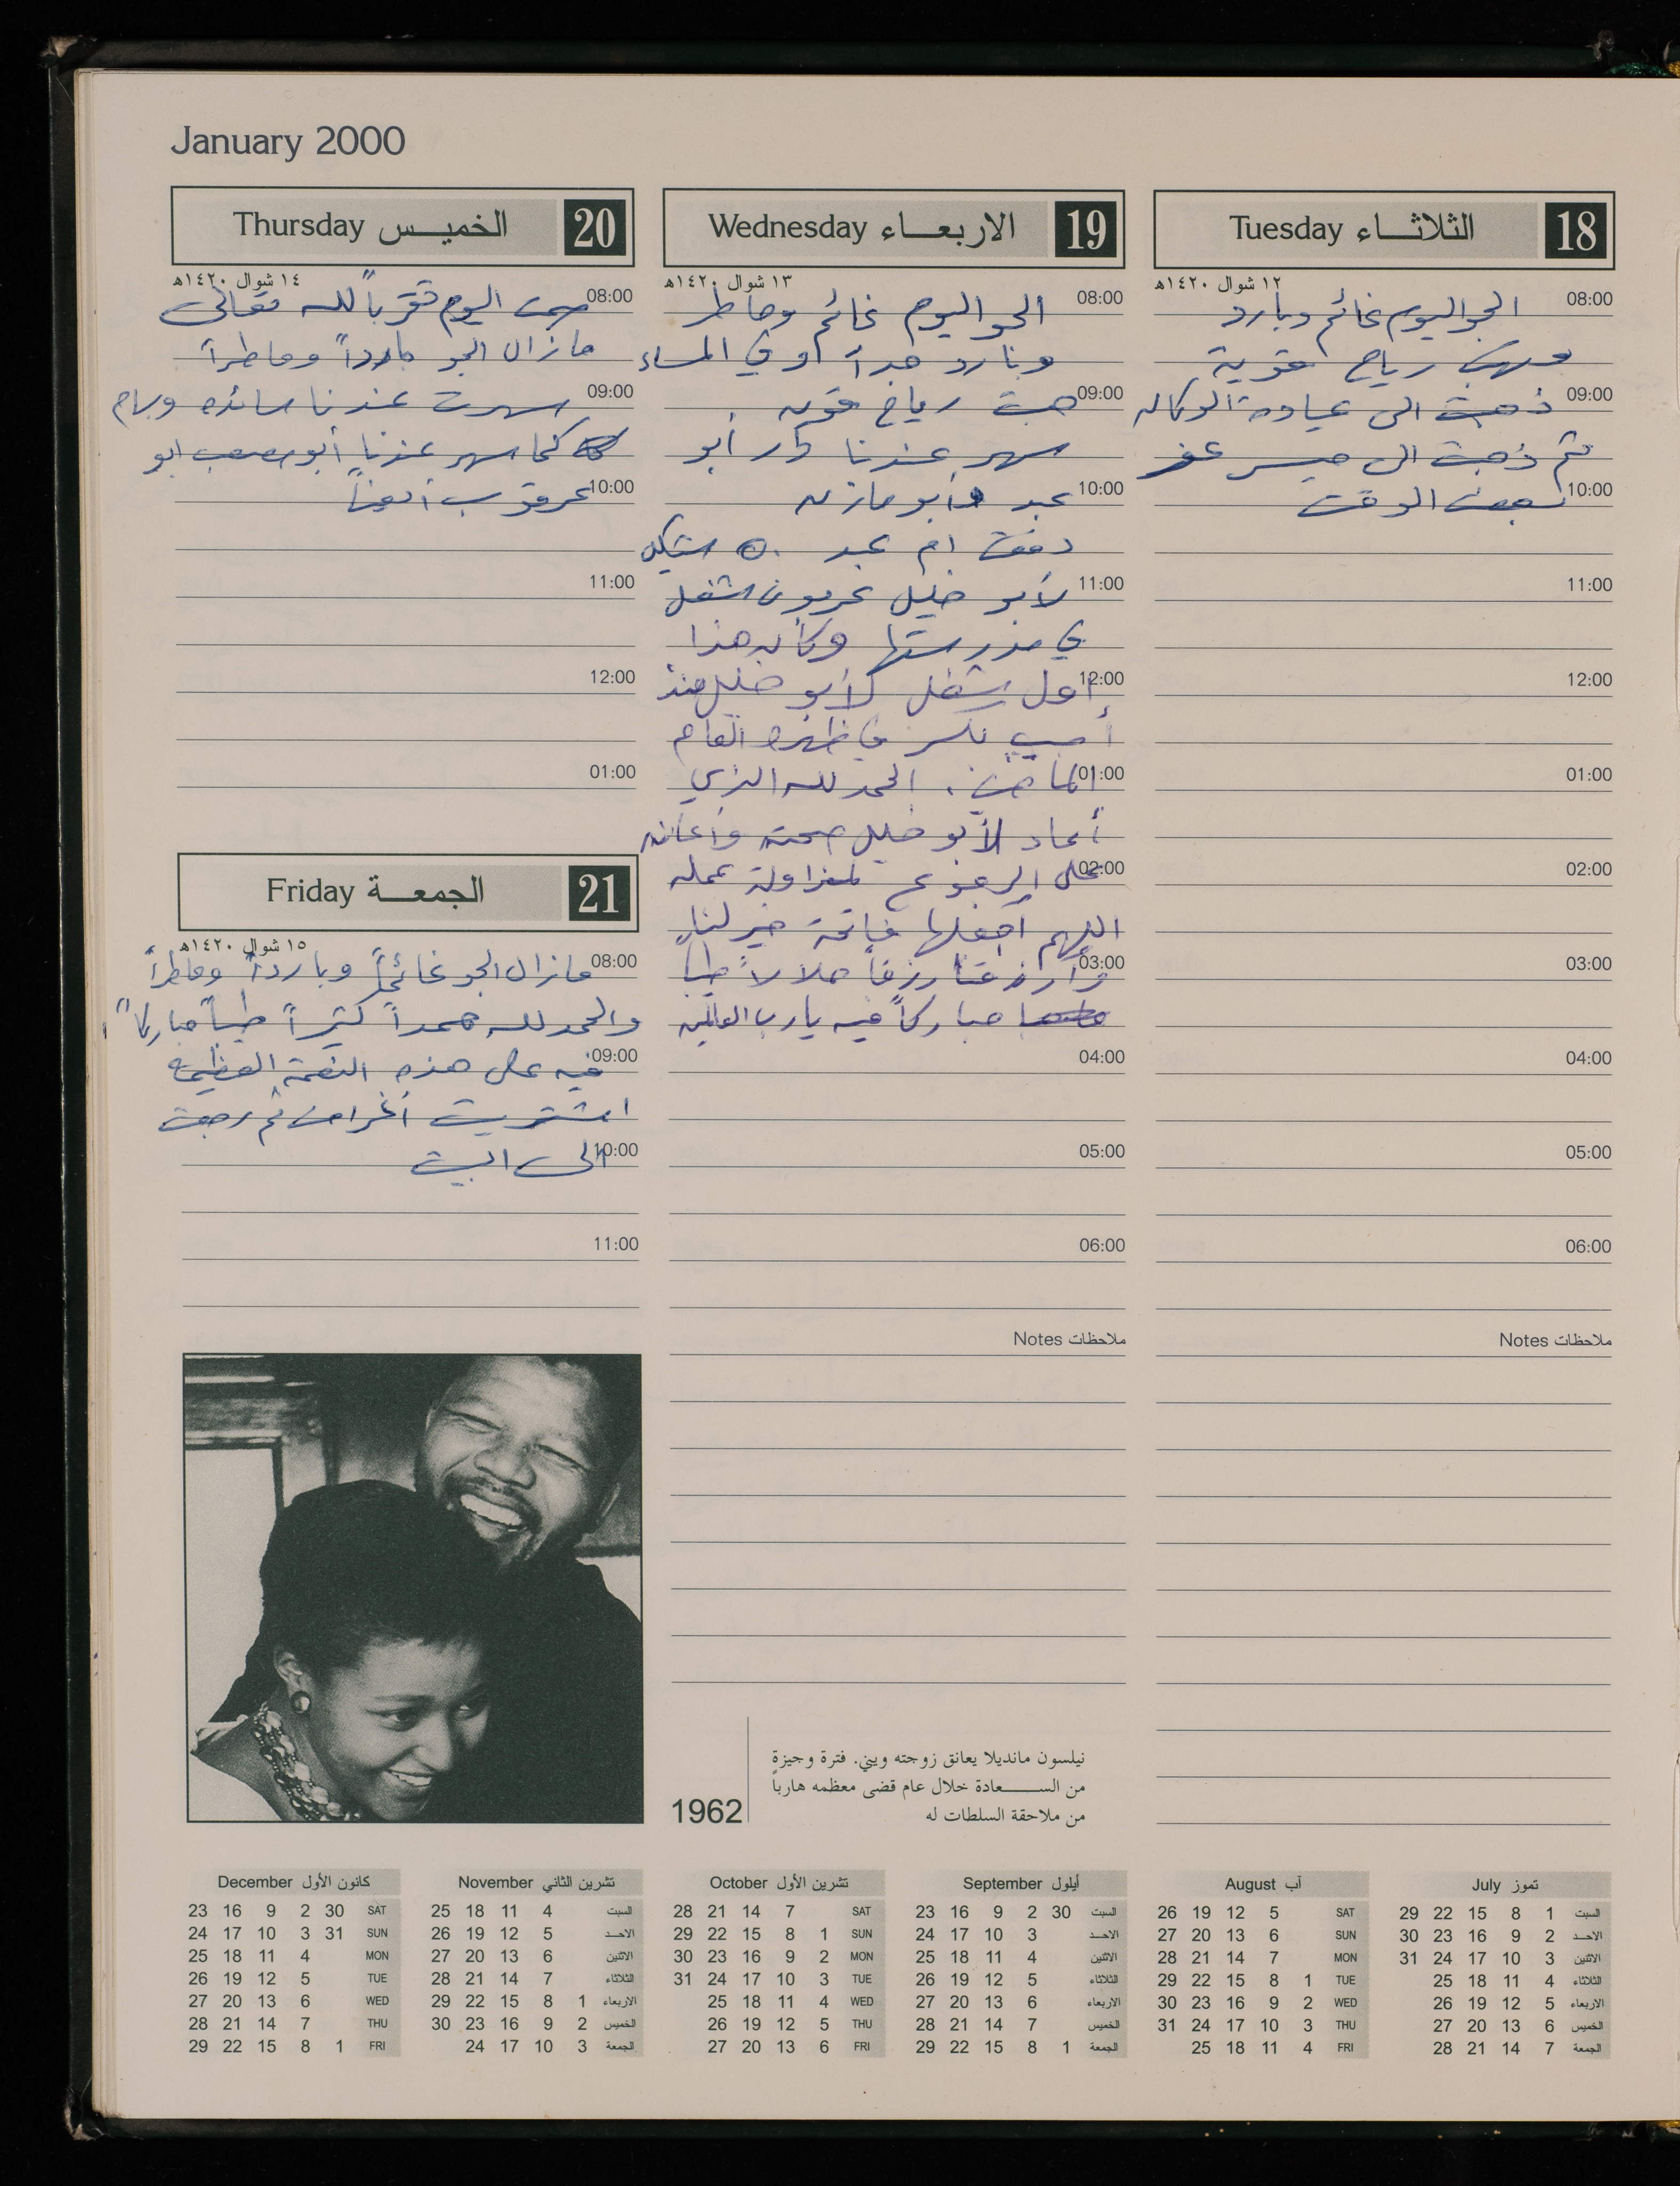 January 2000
18 الثلاثاء Tuesday
١٢ شوال ١٤٢٠هـ
08:00
الجو اليوم غائم وبارد
وهبت رياح قوية
09:00
ذهبت الى عيادة الوكاله
ثم ذهبت الى ميسر
10:00
الوقت
11:00
12:00
01:00
02:00
03:00
04:00
05:00
06:00
ملاحظات Notes
19 الاربعاء Wednesday
١٣ شوال ١٤٢٠هـ
08:00
الجو اليوم غائم وماطر
وبارد جداً وفي المساء
09:00
هبت رياح قويه .
سهر عندنا دار أبو
10:00
عبد وأبو مازن
دفعت ام عبد ٥٠ شيكل
11:00
لأبو خليل عربون شغل
في مدرستها وكان هذا
12:00
أول شغل لأبو خليل منذ
أصيب بكسر في ظهره العام
01:00
الماضي . الحمد لله الذي
أعاد لأبو خليل صحته وأعانه
02:00
على الرجوع لمزاولة عمله
اللهم اجعلها فاتحة خير لنا
03:00
وارزقنا رزقاً حلالاً طيباً
مباركاً فيه يا رب العالمين
04:00
05:00
06:00
ملاحظات Notes
20 الخميس Thursday
١٤ شوال ١٤٢٠هـ
08:00
صمت اليوم تقرباً لله تعالى
مازال الجو بارداً وماطراً
09:00
سهرت عندنا سائده
كما سهر عندنا أبو مصعب ابو
10:00
عرقوب أيضاً
11:00
12:00
01:00
21 الجمعة Friday
١٥ شوال ١٤٢٠هـ
08:00
مازال الجو غائماً وبارداً وماطراً
والحمد لله حمداً كثيراً طيباً مباركاً
09:00
فيه على هذه النعمة العظيمة
اشتريت أغراض ثم رجعت
10:00
الى البيت
11:00
نيلسون مانديلا يعانق زوجته ويني. فترة وجيزة
من السعادة خلال عام قضى معظمه هارباً
من ملاحقة السلطات له
1962
تموز July
السبت 1 8 15 22 29
الاحد 2 9 16 23 30
الاثنين 3 10 17 24 31
الثلاثاء 4 11 18 25
الاربعاء 5 12 19 26
الخميس 6 13 20 27
الجمعة 7 14 21 28
آب August
SAT 5 12 19 26
SUN 6 13 20 27
MON 7 14 21 28
TUE 1 8 15 22 29
WED 2 9 16 23 30
THU 3 10 17 24 31
FRI 4 11 18 25
أيلول September
السبت 30 2 9 16 23
الاحد 3 10 17 24
الاثنين 4 11 18 25
الثلاثاء 5 12 19 26
الاربعاء 6 13 20 27
الخميس 7 14 21 28
الجمعة 1 8 15 22 29
تشرين الأول October
SAT 7 14 21 28
SUN 1 8 15 22 29
MON 2 9 16 23 30
TUE 3 10 17 24 31
WED 4 11 18 25
THU 5 12 19 26
FRI 6 13 20 27
تشرين الثاني November
السبت 4 11 18 25
الاحد 5 12 19 26
الاثنين 6 13 20 27
الثلاثاء 7 14 21 28
الاربعاء 1 8 15 22 29
الخميس 2 9 16 23 30
الجمعة 3 10 17 24
كانون الأول December
SAT 30 2 9 16 23
SUN 31 3 10 17 24
MON 4 11 18 25
TUE 5 12 19 26
WED 6 13 20 27
THU 7 14 21 28
FRI 1 8 15 22 29